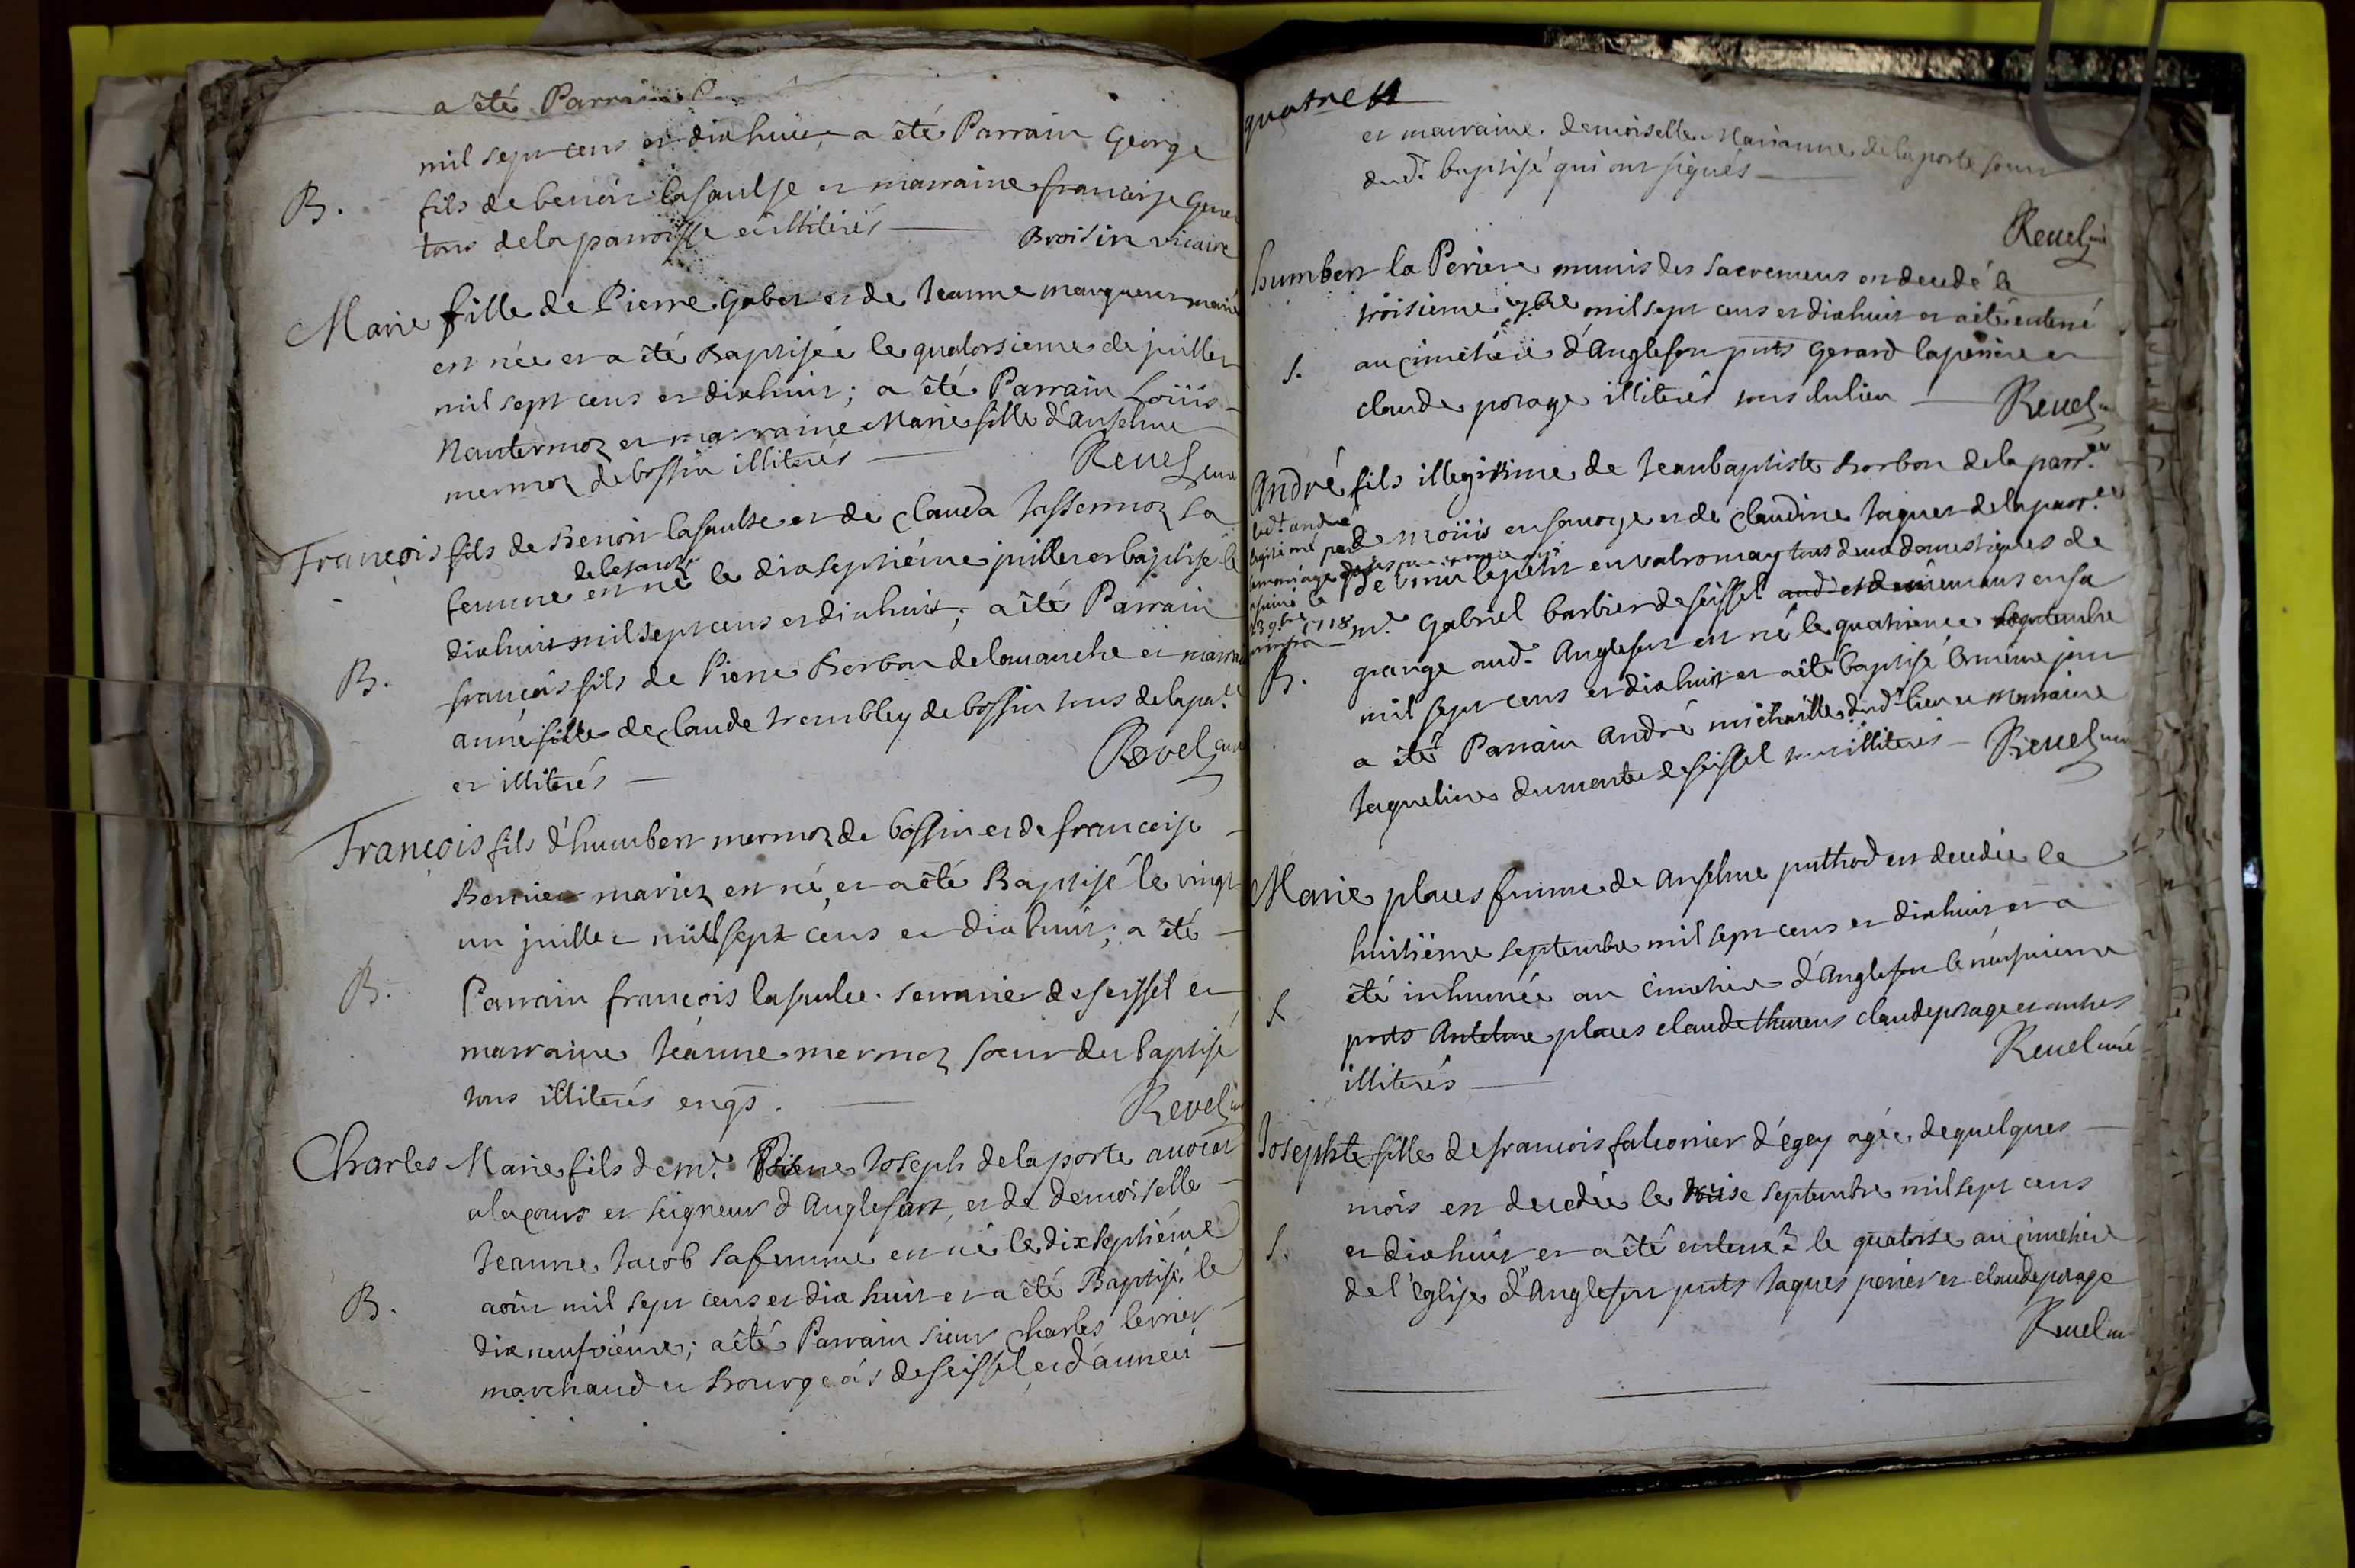 a été Parrain
mil sept cens et dixhuit, a été Parrain George
B. fils de benoit lasaulse et marraine francoise
tous de la parroisse et illiterés — Broisin vicaire
Marie fille de Pierre Gabet et de Jeanne marqueret mariés
est née et a été Baptisée le quatorsieme de juillet
mil sept cens et dixhuit; a été Parrain Loüis
Nantermoz et marraine Marie fille d'Anselme
mermoz de bossin illiterés — Revel curé
François fils de Benoit lasaulse et de Clauda Jassermoz sa
femme est né le dixseptiéme juillet et baptisé le
dixhuit mil sept cens et dixhuit; a été Parrain
B. françois fils de Pierre Borbon de lamanche et marraine
anne fille de claude trembley de bossin tous de la par.
et illiterés — Revel curé
François fils d'humbert mermoz de bossin et de francoise
Bernier mariez est né, et a été Baptisé le vingt
un juillet mil sept cens et dixhuit; a été
B. Parrain françois lasaulce serrurier de seissel et
marraine Jeanne mermoz soeur du baptisé
tous illiterés enqs. — Revel curé
Charles Marie fils de mr. Pierre Joseph de la porte avocat
a la cour et seigneur d'Anglefort, et de demoiselle
Jeanne Jacob sa femme est né le dixseptiéme
B. août mil sept cens et dix huit et a été Baptisé le
dixneufviéme; a été Parrain sieur Charles
marchand et Bourgeois de seissel, et d'anneci
quatre
et marraine demoiselle Marianne de la porte soeur
dud. baptisé qui ont signés —
Revel curé
humbert la Periere munis des sacremens est decedé le
troisieme 7bre mil sept cens et dixhuit et a été enterré
S. au cimetiére d'Anglefort pnts Gerard laperiere et
claude porage illiterés tous du lieu — Revel
André fils illegitime de Jean baptiste Borbon de la parr.
de moüis en savoye et de Claudine Jaquet de la parr.
de virieu le petit en valromay tous deux domestiques de
mr. Gabriel barbier de seissel en sa
grange aud. Anglefort est né le quatrieme septembre
B. mil sept cens et dixhuit et a été baptisé le même jour
a été Parrain André michaille dud. lieu et Marraine
Jaqueline dumarte de seissel illiterés — Revel curé
led. andré
legitimé par
mariage
le
23 9bre 1718
Marie places femme de Anselme puthod est decedée le
huitiéme septembre mil sept cens et dixhuit et a
été inhumée au cimetiere d'Anglefort le neufvieme
S. pnts Antelme places claude thurens claude porage et autres
illiterés — Revel curé
Josephte fille de francois falconier d'égey agée de quelques
mois est decedée le treise septembre mil sept cens
S. et dixhuit et a été enterrée le quatorse au cimetiére
de l'église d'Anglefort pnts Jaques perier et claude porage
Revel